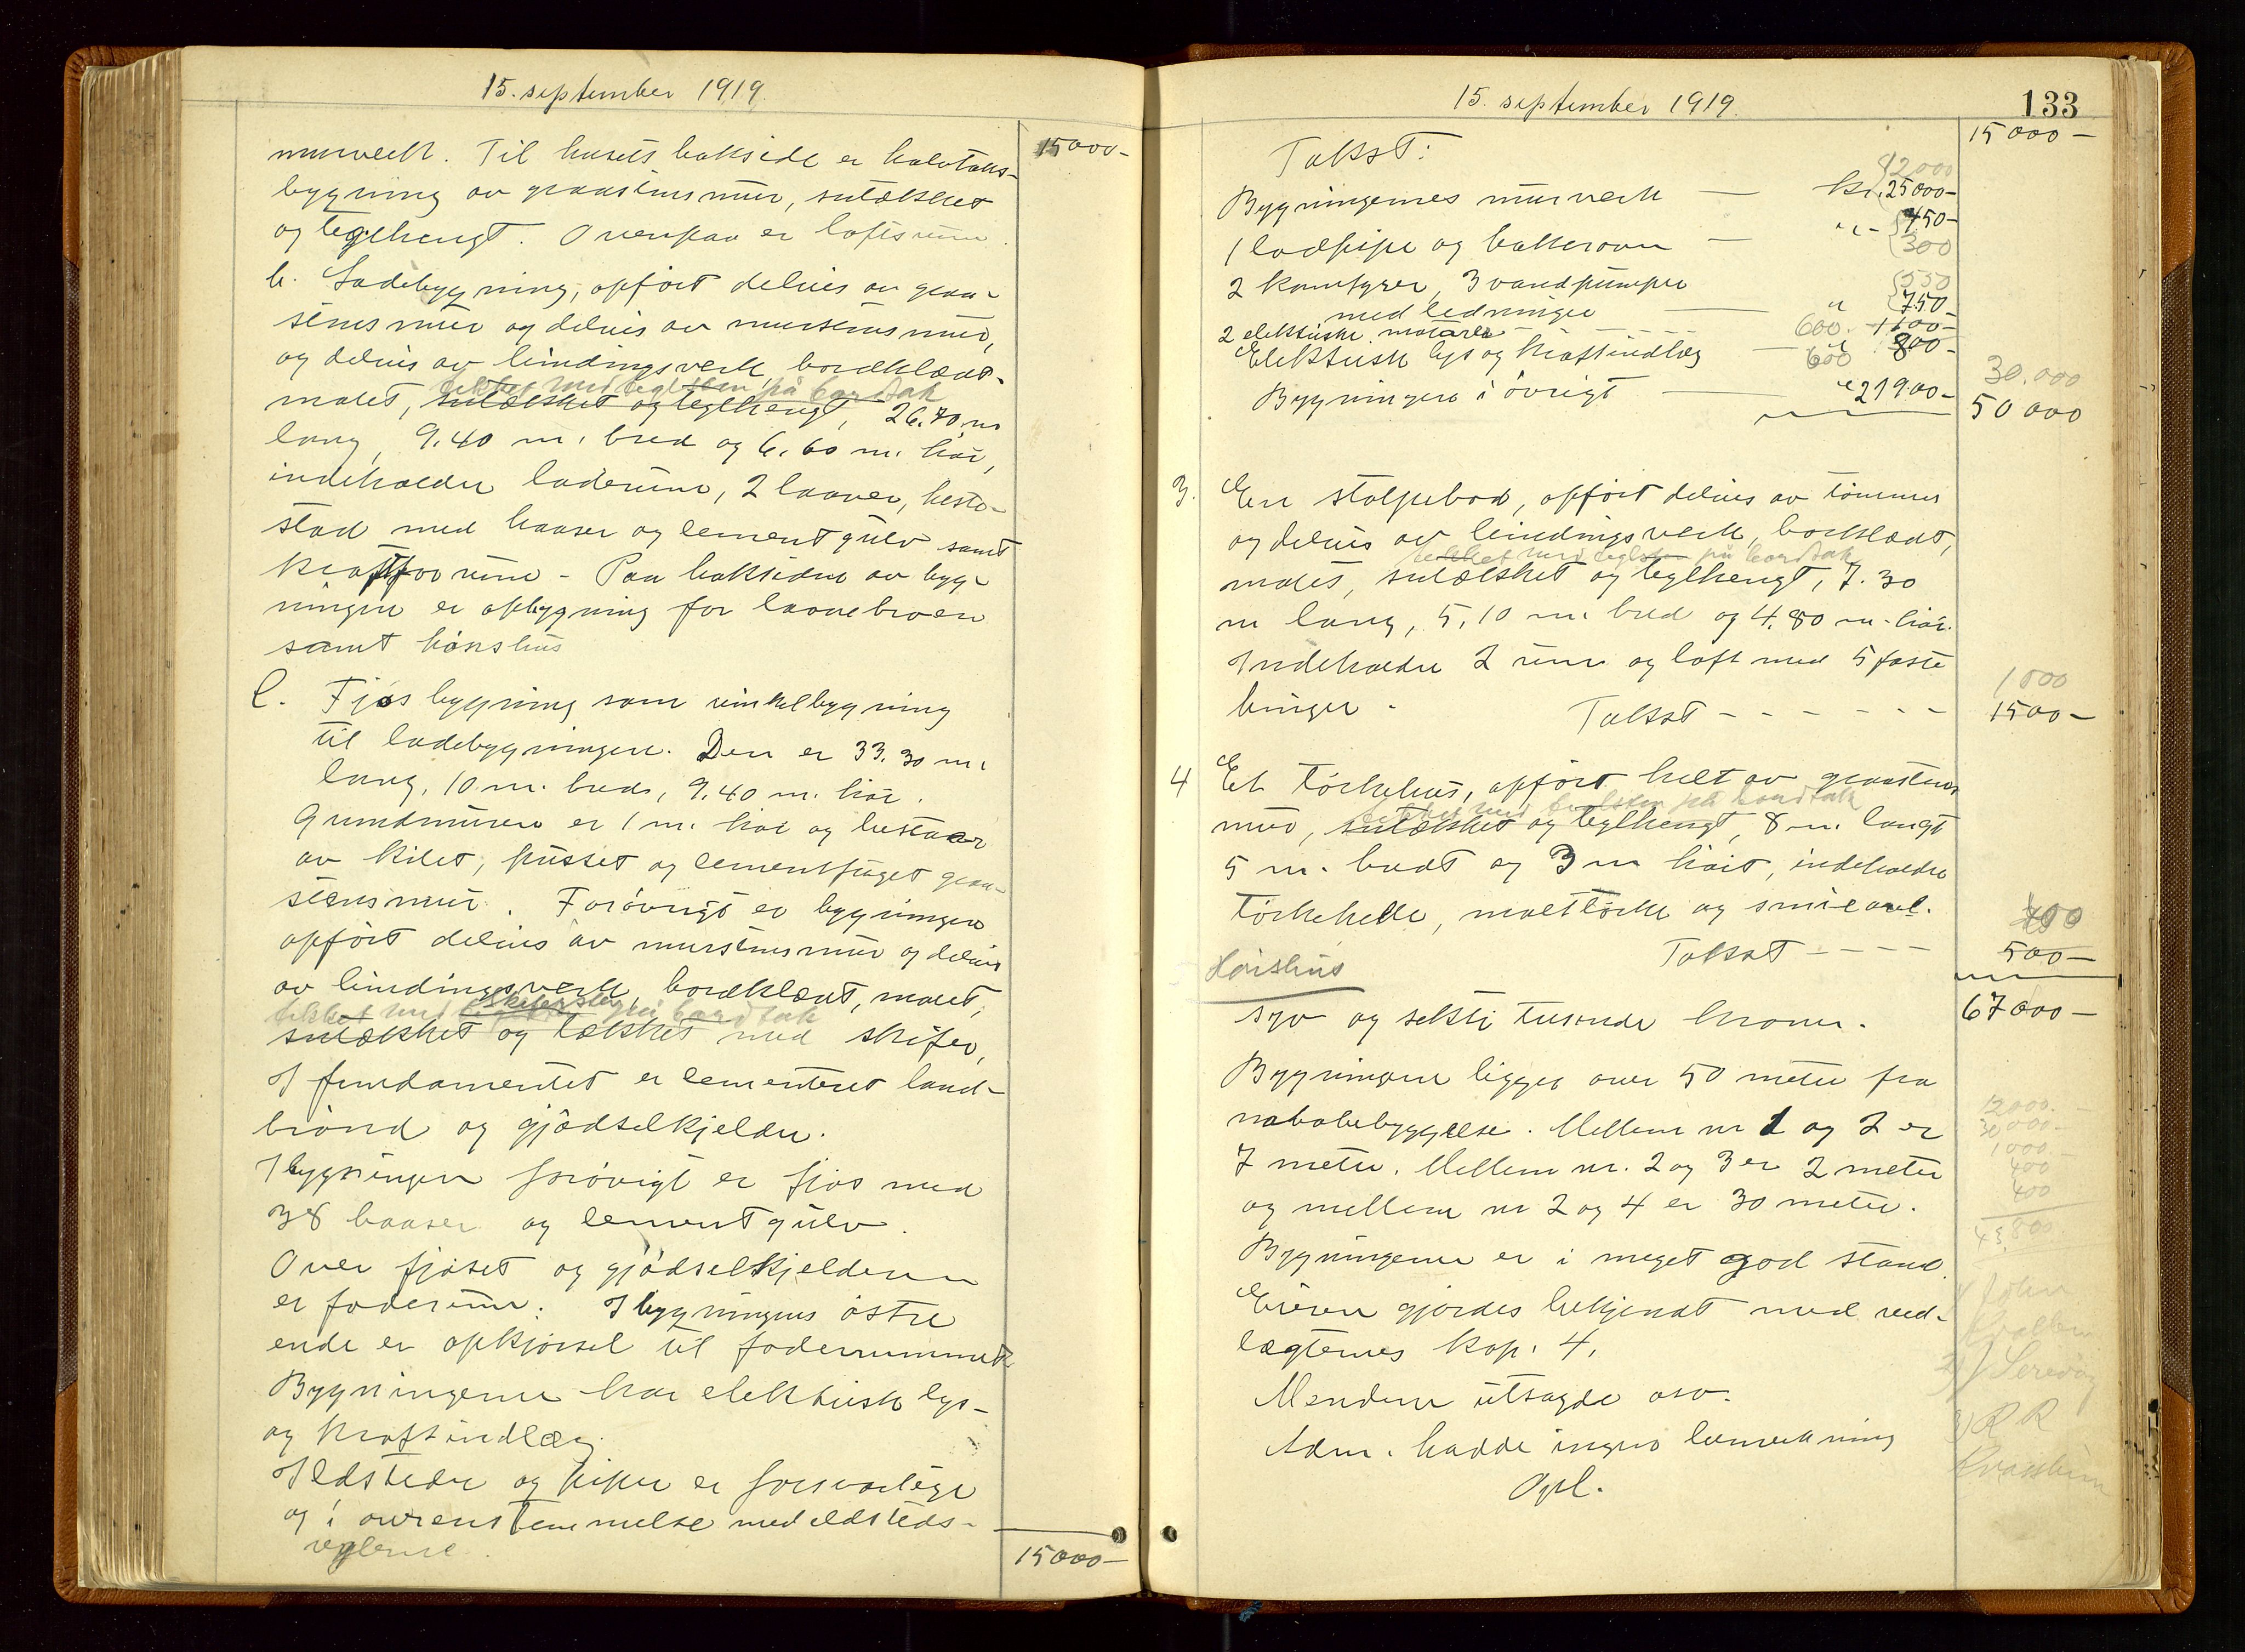 15. september 1919.
15000-
murverk. Til husets bakside er halvtaks-
bygning av graastensmur, sutækket
og teglhengt. Ovenpaa er loftsrum.
b. Ladebygning, opført delvis av graa-
stensmur og delvis av murstensmur,
og delvis av bindingsverk, bordklædt,
tekket med teglsten på bordtak
malet, sutækket og teglhengt, 26.70 m
lang, 9.40 m. bred og 6.60 m. høi,
indeholder laderum, 2 laaver, heste-
stad med baaser og cementgulv samt
kraftforrum - Paa baksiden av byg-
ningen er opbygning for laavebroen
samt hønshus
C. Fjøsbygning som vinkelbygning
til ladebygningen. Den er 33.30 m.
lang, 10 m. bred, 9.40 m. høi.
Grundmuren er 1 m. høi og bestaaer
av kilet, pusset og cementfuget graa-
stensmur. Forøvrigt er bygningen
opført delvis av murstensmur og delvis
av bindingsverk, bordklædt, malet,
tekket med skifersten på bordtak
sutækket og tækket med skifer,
I fundamentet er cementeret land-
brønd og gjødselkjelder.
I bygningen forøvrigt er fjøs med
38 baaser og cementgulv.
Over fjøset og gjødselkjelderen
er foderrum. I bygningens østre
ende er opkjørsel til foderrummet
Bygningerne har elektrisk lys-
og kraftindlæg.
Ildsteder og piper er forsvarlige
og i overenstemmelse med ildsteds-
reglerne.
15000-
15. september 1919.
133
15000-
Takst:
12000
Bygningernes murverk — kr. 25000-
1 ladpipe og bakerovn — "- 450-
300
550
2 komfyrer, 3 vandpumper
med ledninger — " 750-
2 elektriske motorer - - - 600. 1100-
Elektrisk lys og kraftindlæg — 600 " 800-
30.000
Bygningen i øvrigt — " 21900-
50000
3. En stolpebod, opført delvis av tømmer
og delvis av bindingsverk, bordklædt,
tekket med teglsten på bordtak
malet, sutækket og teglhengt, 7.30
m lang, 5.10 m. bred og 4.80 m. høi.
Indeholder 2 rum og loft med 5 faste
1000
binger. Takst - - - - - - 1500-
4 Et tørkehus, opført helt av graastens
tekket med teglsten på bordtak
mur, sutækket og teglhengt, 8 m. langt
5 m. bredt og 3 m høit, indeholder
tørkehelle, malttørke og smieavl.
400
Takst - - - 500-
Hønshus
syv og seksti tusinde kroner. 67000-
Bygningene ligger over 50 meter fra
nabobebyggelse. Mellem nr 1 og 2 er
7 meter. Mellem nr. 2 og 3 er 2 meter
og mellem nr 2 og 4 er 30 meter.
12000.-
30000.-
1000.-
400
400
43,800.
Bygningerne er i meget god stand.
Eieren gjordes bekjendt med ved-
tægternes kap. 4.
Mændene utsagde osv.
Adm. hadde ingen bemerkning
Opl.
1) John
Kvalbein
2) J Serevåg
3) R R
Kvassheim